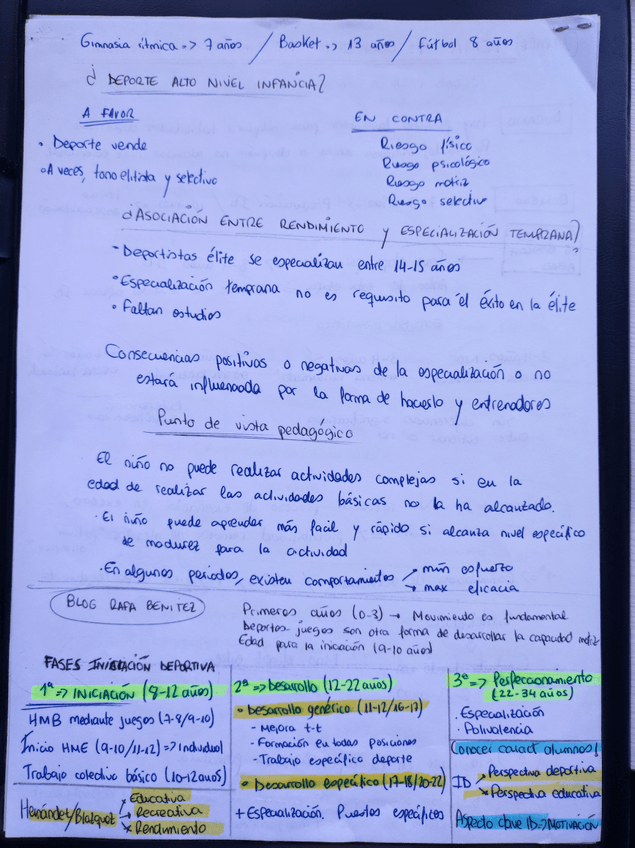 Gimnasia rítmica => 7 años / Basket => 13 años / Fútbol 8 años
¿ DEPORTE ALTO NIVEL INFANCIA?
A FAVOR
• Deporte vende
• A veces, tono elitista y selectivo
EN CONTRA
Riesgo físico
Riesgo psicológico
Riesgo motriz
Riesgo selectivo
¿ASOCIACIÓN ENTRE RENDIMIENTO y ESPECIALIZACIÓN TEMPRANA?
• Deportistas élite se especializan entre 14-15 años
• Especialización temprana no es requisito para el éxito en la élite
• Faltan estudios
Consecuencias positivas o negativas de la especialización o no
estará influenciada por la forma de hacerlo y entrenadores
Punto de vista pedagógico
· El niño no puede realizar actividades complejas si en la
edad de realizar las actividades básicas no la ha alcanzado.
· El niño puede aprender más fácil y rápido si alcanza nivel específico
de madurez para la actividad
· En algunos periodos, existen comportamientos → mín esfuerzo
→ max eficacia
BLOG RAFA BENITEZ
Primeros años (0-3) → Movimiento es fundamental
Deportes-juegos son otra forma de desarrollar la capacidad motriz
Edad para la iniciación (9-10 años)
FASES INICIACIÓN DEPORTIVA
1ª => INICIACIÓN (8-12 años)
HMB mediante juegos (7-8/9-10)
Inicio HME (9-10/11-12) => Individual
Trabajo colectivo básico (10-12 años)
Hernández/Blázquez → Educativa
→ Recreativa
→ Rendimiento
2ª => Desarrollo (12-22 años)
• Desarrollo genérico (11-12/16-17)
- Mejora t-t
- Formación en todas posiciones
- Trabajo específico deporte
• Desarrollo específico (17-18/20-22)
+ Especialización. Puestos específicos
3ª => Perfeccionamiento
(22-34 años)
. Especialización
. Polivalencia
Conocer caract alumnos!
ID → Perspectiva deportiva
→ Perspectiva educativa
Aspecto clave ID -> MOTIVACIÓN